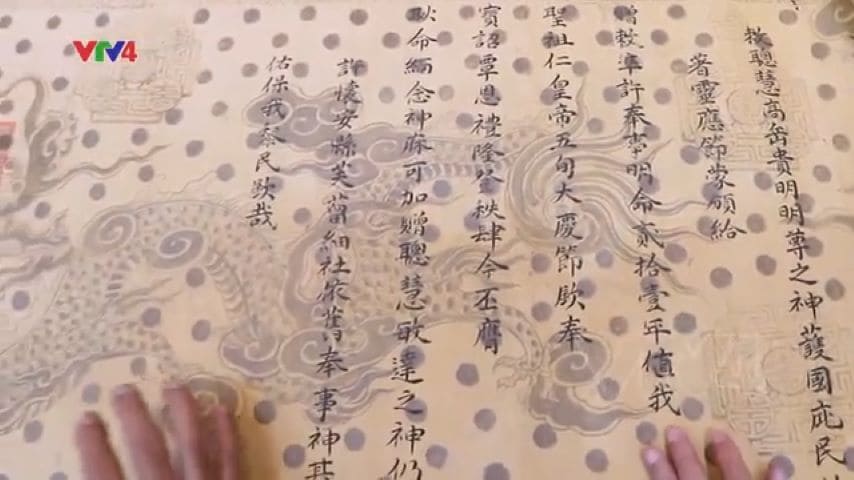 VTV4
敕聰慧高岳貴明明尊之神護國庇民
著靈應節蒙頒給
贈敕準許奉事明命貳拾壹年值我
聖祖仁皇帝五旬大慶節欽奉
寶詔覃恩禮隆登秩肆今丕膺
耿命緬念神庥可加贈聰慧敏達之神仍
許懷安縣芙蒥細社依舊奉事神其
佑保我黎民欽哉